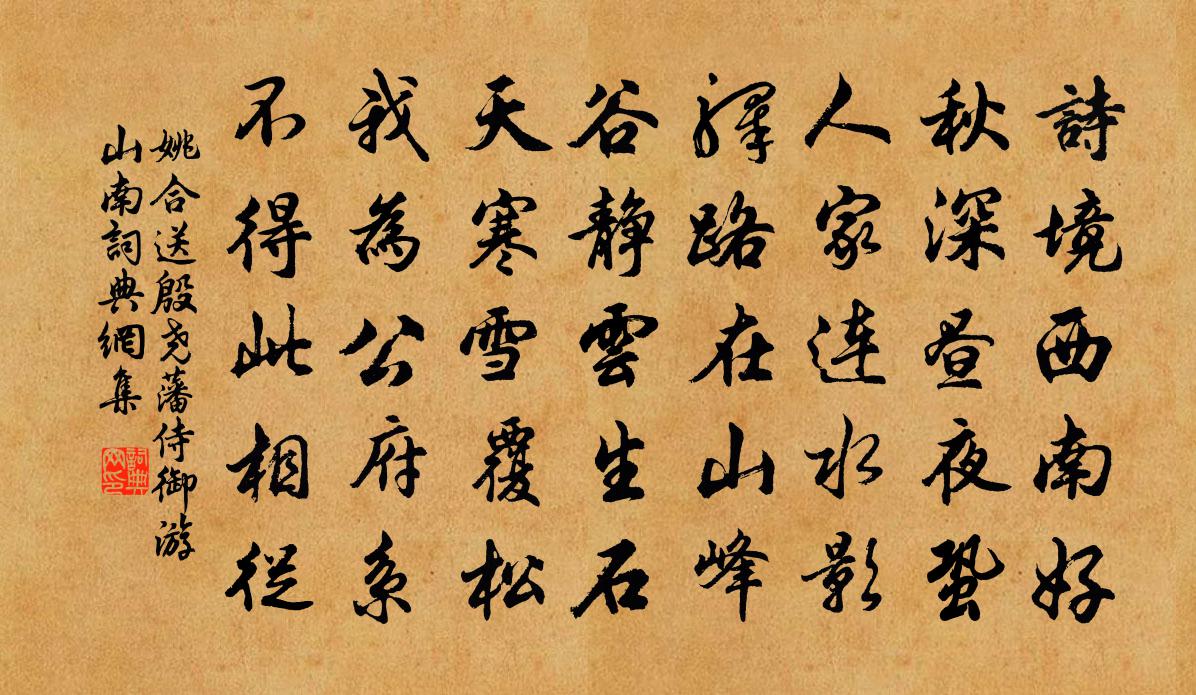 詩境西南好
秋深昼夜蛩
人家連水影
驛路在山峰
谷静雲生石
天寒雪覆松
我為公府系
不得此相從
姚合送殷尧藩侍御游
山南詞典網集
詞典網印